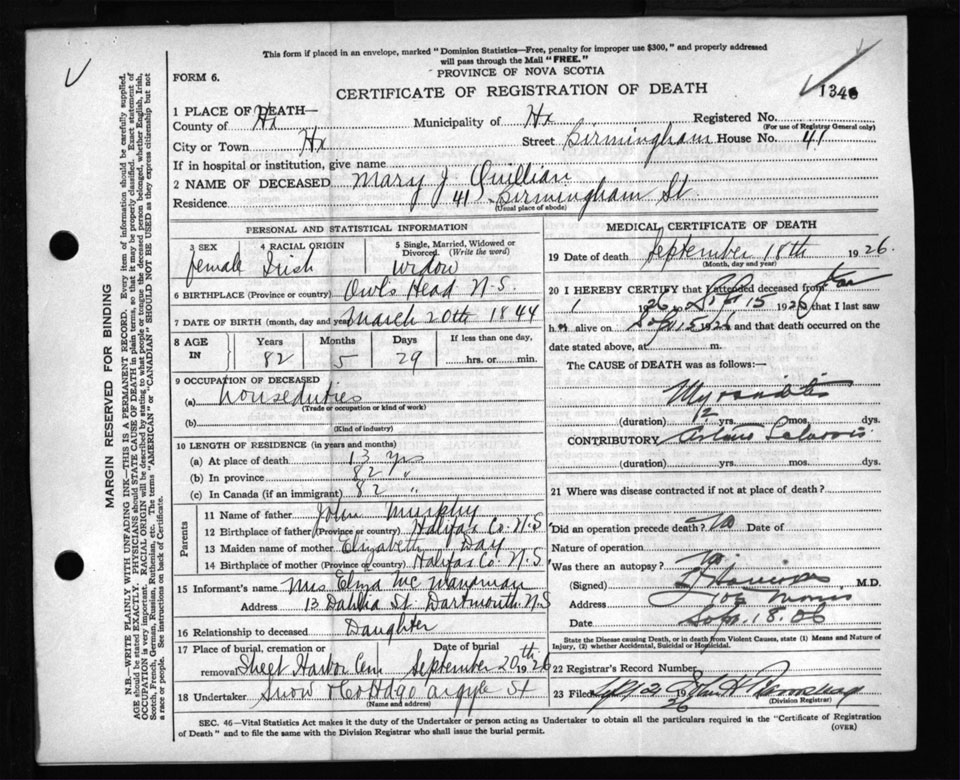 This form if placed in an envelope, marked "Dominion Statistics—Free, penalty for improper use $300," and properly addressed
will pass through the Mail "FREE."
PROVINCE OF NOVA SCOTIA
FORM 6.
CERTIFICATE OF REGISTRATION OF DEATH
134
1 PLACE OF DEATH—
County of Hx Municipality of Hx Registered No.
(For use of Registrar General only)
City or Town Hx Street Birmingham House No. 41
If in hospital or institution, give name
2 NAME OF DECEASED Mary J Quillian
Residence 41 Birmingham St
(Usual place of abode)
PERSONAL AND STATISTICAL INFORMATION
3 SEX 4 RACIAL ORIGIN 5 Single, Married, Widowed or Divorced. (Write the word)
female Irish Widow
6 BIRTHPLACE (Province or country) Owls Head N.S.
7 DATE OF BIRTH (month, day and year) March 20th 1844
8 AGE IN Years Months Days If less than one day,
82 5 29 hrs. or min.
9 OCCUPATION OF DECEASED
(a) houseduties
(Trade or occupation or kind of work)
(b)
(Kind of industry)
10 LENGTH OF RESIDENCE (in years and months)
(a) At place of death 13 yrs
(b) In province 82 "
(c) In Canada (if an immigrant) 82 "
Parents
11 Name of father John Murphy
12 Birthplace of father (Province or country) Halifax Co. N.S
13 Maiden name of mother Elizabeth Day
14 Birthplace of mother (Province or country) Halifax Co. N.S
15 Informant's name Mrs Eliza
Address 13 Dahlia St. Dartmouth N.S
16 Relationship to deceased Daughter
17 Place of burial, cremation or removal Date of burial
Sheet Harbor Cem September 20th 1926
18 Undertaker Snow & Co Argyle St
(Name and address)
MEDICAL CERTIFICATE OF DEATH
19 Date of death September 18th 1926.
(Month, day and year)
20 I HEREBY CERTIFY that I attended deceased from Jan
1 1926 to Sept 15 1926 that I last saw
h alive on Sept 15 1926 and that death occurred on the
date stated above, at m.
The CAUSE OF DEATH was as follows:—
Myocarditis
(duration) 12 yrs. mos. dys.
CONTRIBUTORY
(duration) yrs. mos. dys.
21 Where was disease contracted if not at place of death?
Did an operation precede death? no Date of
Nature of operation
Was there an autopsy? no
(Signed) M.D.
Address Morris
Date Sept. 18.
State the Disease causing Death, or in death from Violent Causes, state (1) Means and Nature of
Injury, (2) whether Accidental, Suicidal or Homicidal.
22 Registrar's Record Number
23 Filed 1926
(Division Registrar)
SEC. 46—Vital Statistics Act makes it the duty of the Undertaker or person acting as Undertaker to obtain all the particulars required in the "Certificate of Registration
of Death" and to file the same with the Division Registrar who shall issue the burial permit.
(OVER)
MARGIN RESERVED FOR BINDING
N.B.—WRITE PLAINLY WITH UNFADING INK—THIS IS A PERMANENT RECORD. Every item of information should be carefully supplied.
AGE should be stated EXACTLY. PHYSICIANS should STATE CAUSE OF DEATH in plain terms, so that it may be properly classified. Exact statement of
OCCUPATION is very important. RACIAL ORIGIN will be described by stating to what people or tongue the deceased person belonged, whether English, Irish,
Scotch, French, German, Russian, Ruthenian, etc. The terms "AMERICAN" or "CANADIAN" SHOULD NOT BE USED as they express citizenship but not
a race or people. See instructions on back of Certificate.